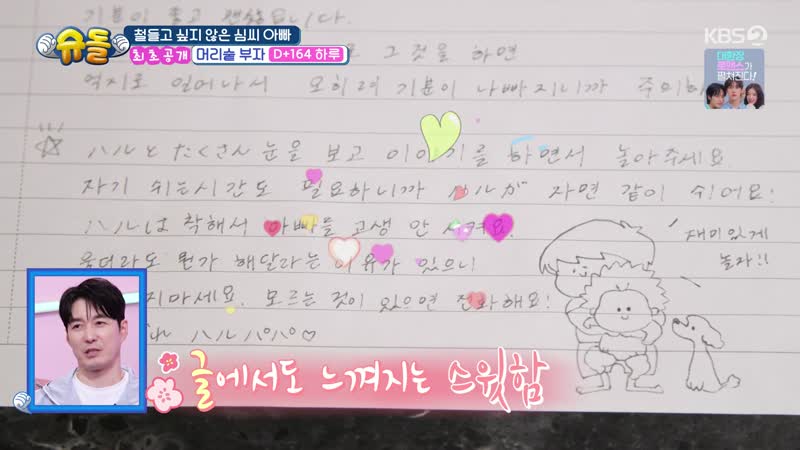 슈돌
철들고 싶지 않은 심씨 아빠
최초공개 머리숱 부자 D+164 하루
KBS2
대환장
로맨스가
펼쳐진다!
기분이 좋고 괜찮습니다.
그것을 하면
억지로 일어나서 오히려 기분이 나빠지니까 주의
ハルと たくさん 눈을 보고 이야기를 하면서 놀아주세요.
자기 쉬는시간도 필요하니까 ハルが 자면 같이 쉬어요!
ハルは 착해서 아빠를 고생 안 시켜요.
울더라도 뭔가 해달라는 이유가 있으니
지마세요. 모르는 것이 있으면 전화해요!
ハル パパ♡
재미있게
놀자!!
글에서도 느껴지는 스윗함